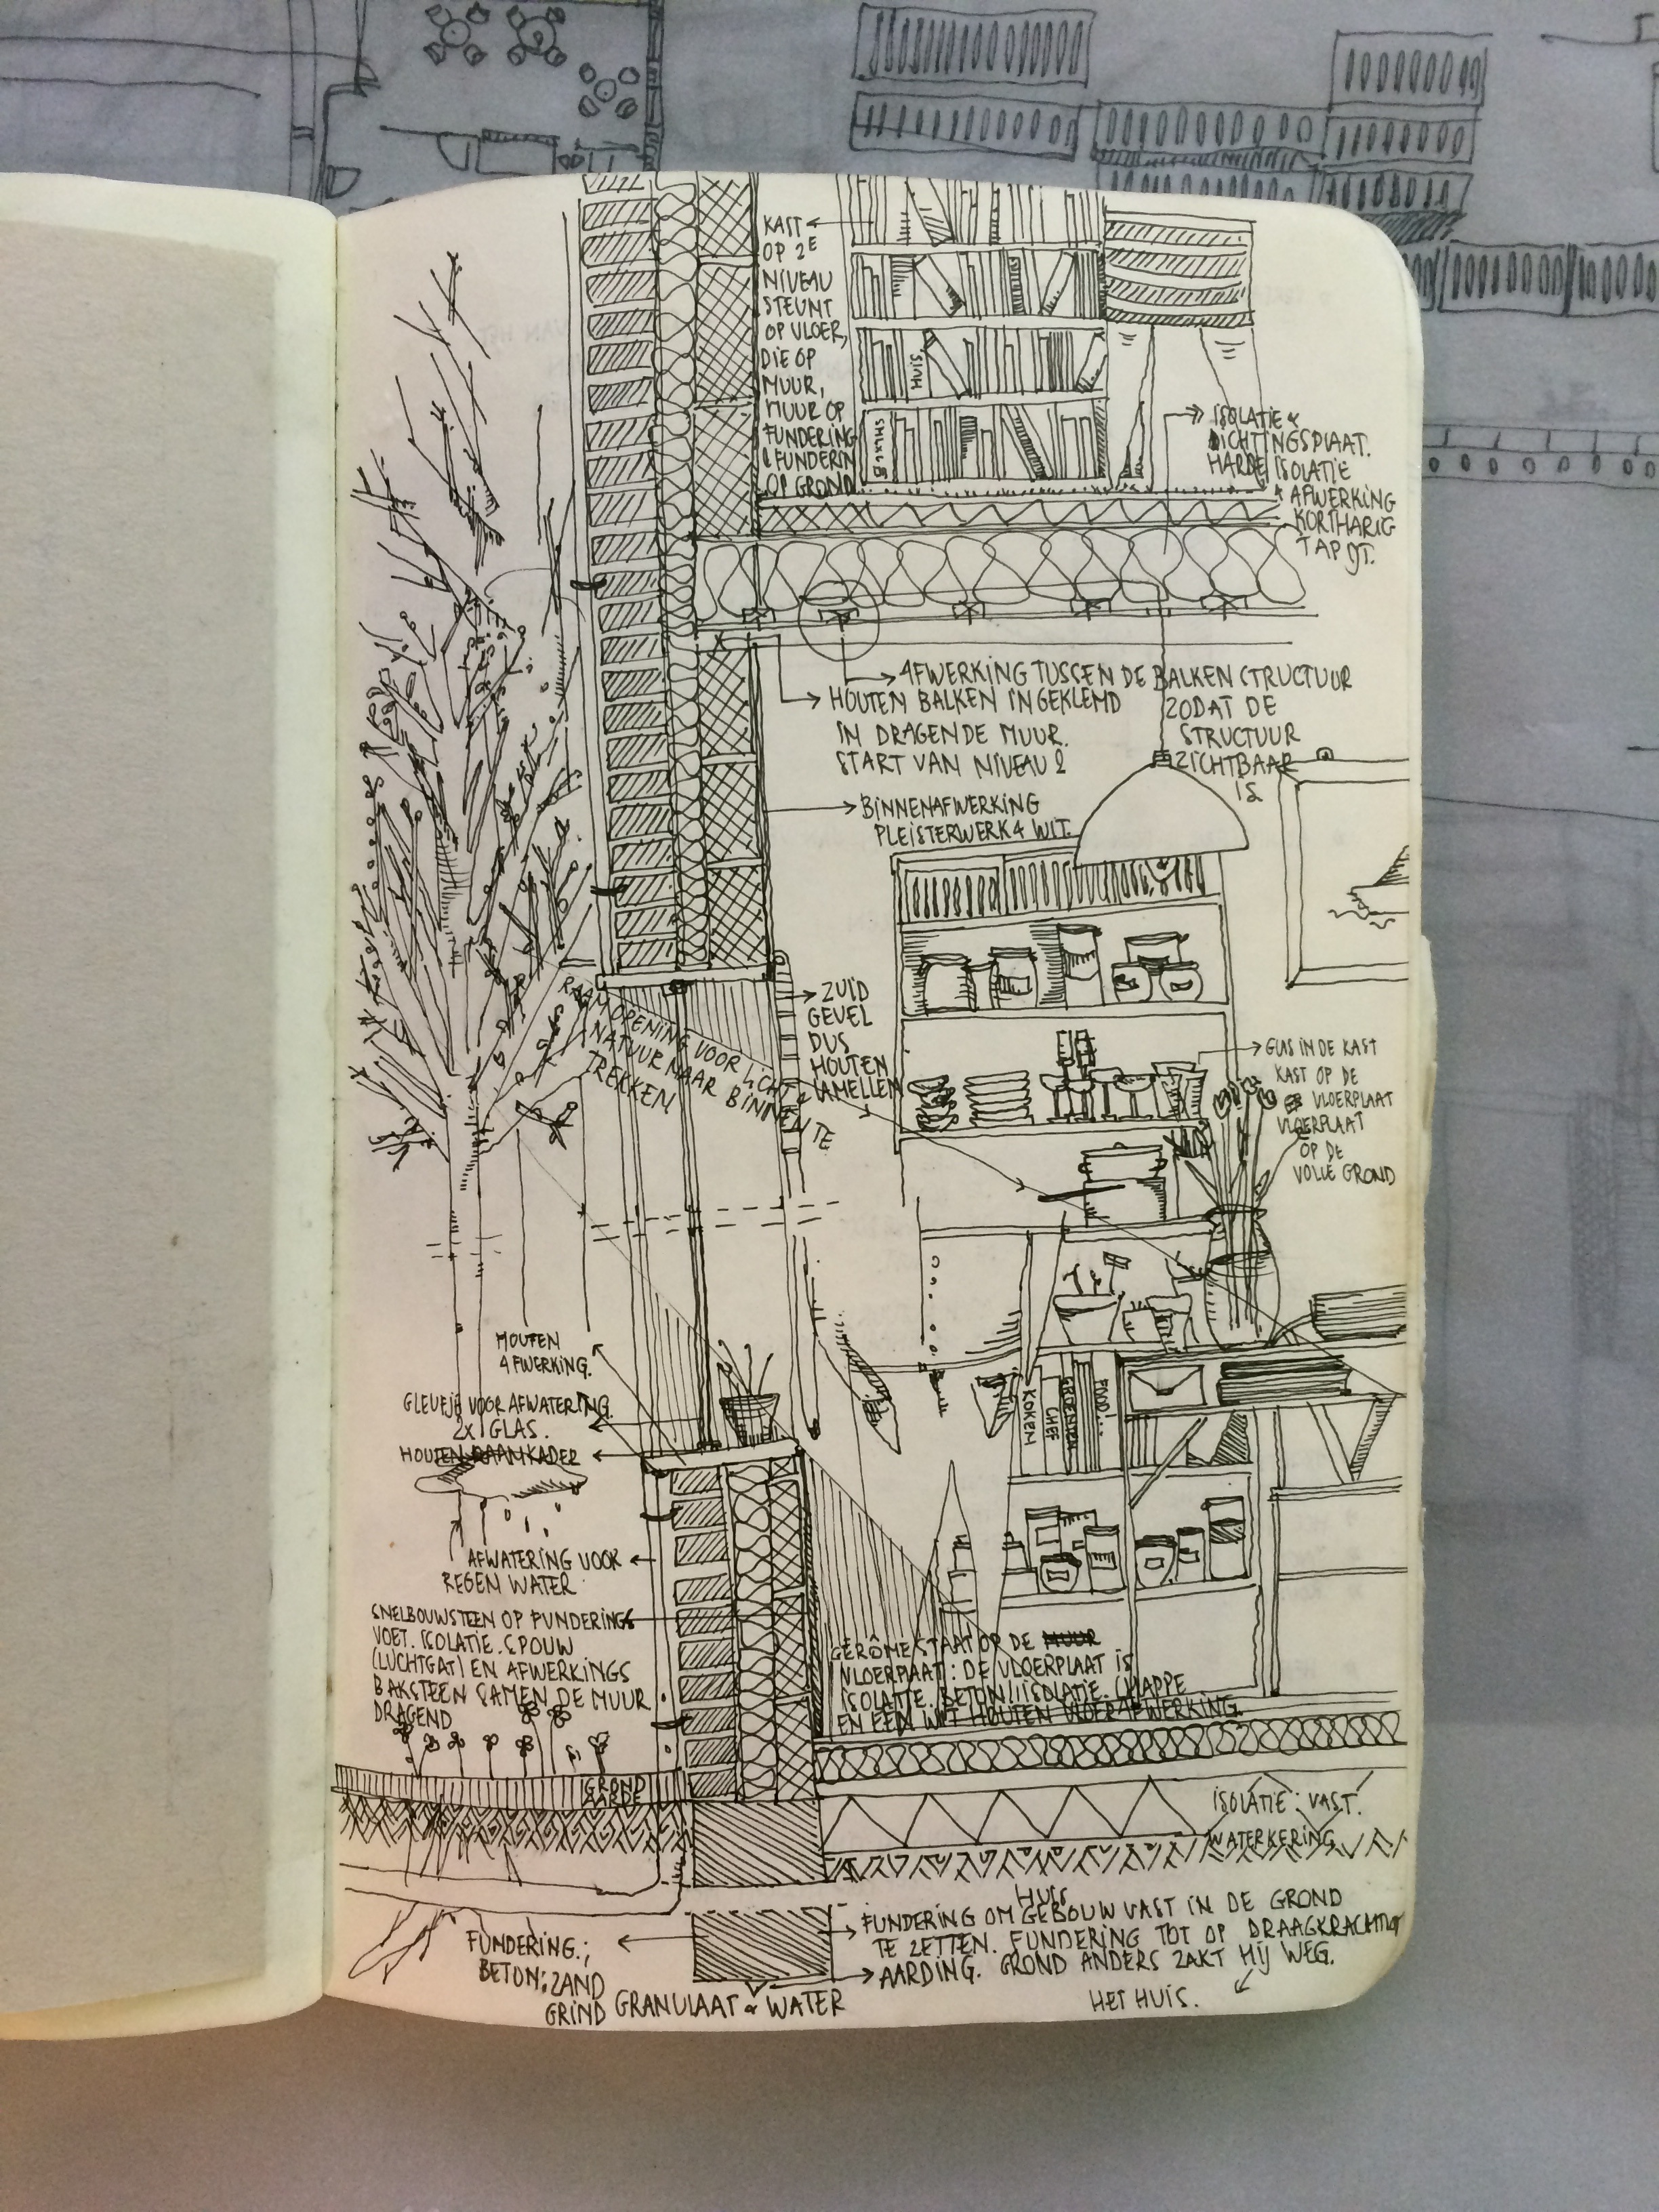 KAST
OP 2E
NIVEAU
STEUNT
OP VLOER,
DIE OP
MUUR,
MUUR OP
FUNDERING
& FUNDERIN
OP GROND
HUIS
SMLXL
ISOLATIE &
DICHTINGSPLAAT.
HARDE ISOLATIE
& AFWERKING
KORTHARIG
TAPIJT.
AFWERKING TUSSEN DE BALKEN STRUCTUUR
ZODAT DE
STRUCTUUR
ZICHTBAAR
IS
HOUTEN BALKEN INGEKLEMD
IN DRAGENDE MUUR.
START VAN NIVEAU 2
BINNENAFWERKING
PLEISTERWERK & WIT.
RAAMOPENING VOOR LICHT &
NATUUR NAAR BINNEN TE
TREKKEN
ZUID
GEVEL
DUS
HOUTEN
LAMELLEN
GLAS IN DE KAST
KAST OP DE
VLOERPLAAT
VLOERPLAAT
OP DE
VOLLE GROND
HOUTEN
AFWERKING.
GLEUFJE VOOR AFWATERING.
2X GLAS.
HOUTEN RAAMKADER
KOKEN
CHEF
GROENTEN
FOOD...
AFWATERING VOOR
REGEN WATER
SNELBOUWSTEEN OP FUNDERINGS
VOET. ISOLATIE. SPOUW
(LUCHTGAT) EN AFWERKINGS
BAKSTEEN SAMEN DE MUUR
DRAGEND
GERÔME STAAT OP DE MUUR
VLOERPLAAT: DE VLOERPLAAT IS
ISOLATIE. BETON. ISOLATIE. CHAPPE
EN EEN WIT HOUTEN VLOERAFWERKING.
GROND
AARDE
ISOLATIE: VAST.
WATERKERING
HUIS
FUNDERING OM GEBOUW VAST IN DE GROND
TE ZETTEN. FUNDERING TOT OP DRAAGKRACHTIGE
GROND ANDERS ZAKT HIJ WEG.
HET HUIS.
AARDING.
FUNDERING.;
BETON: ZAND
GRIND GRANULAAT & WATER